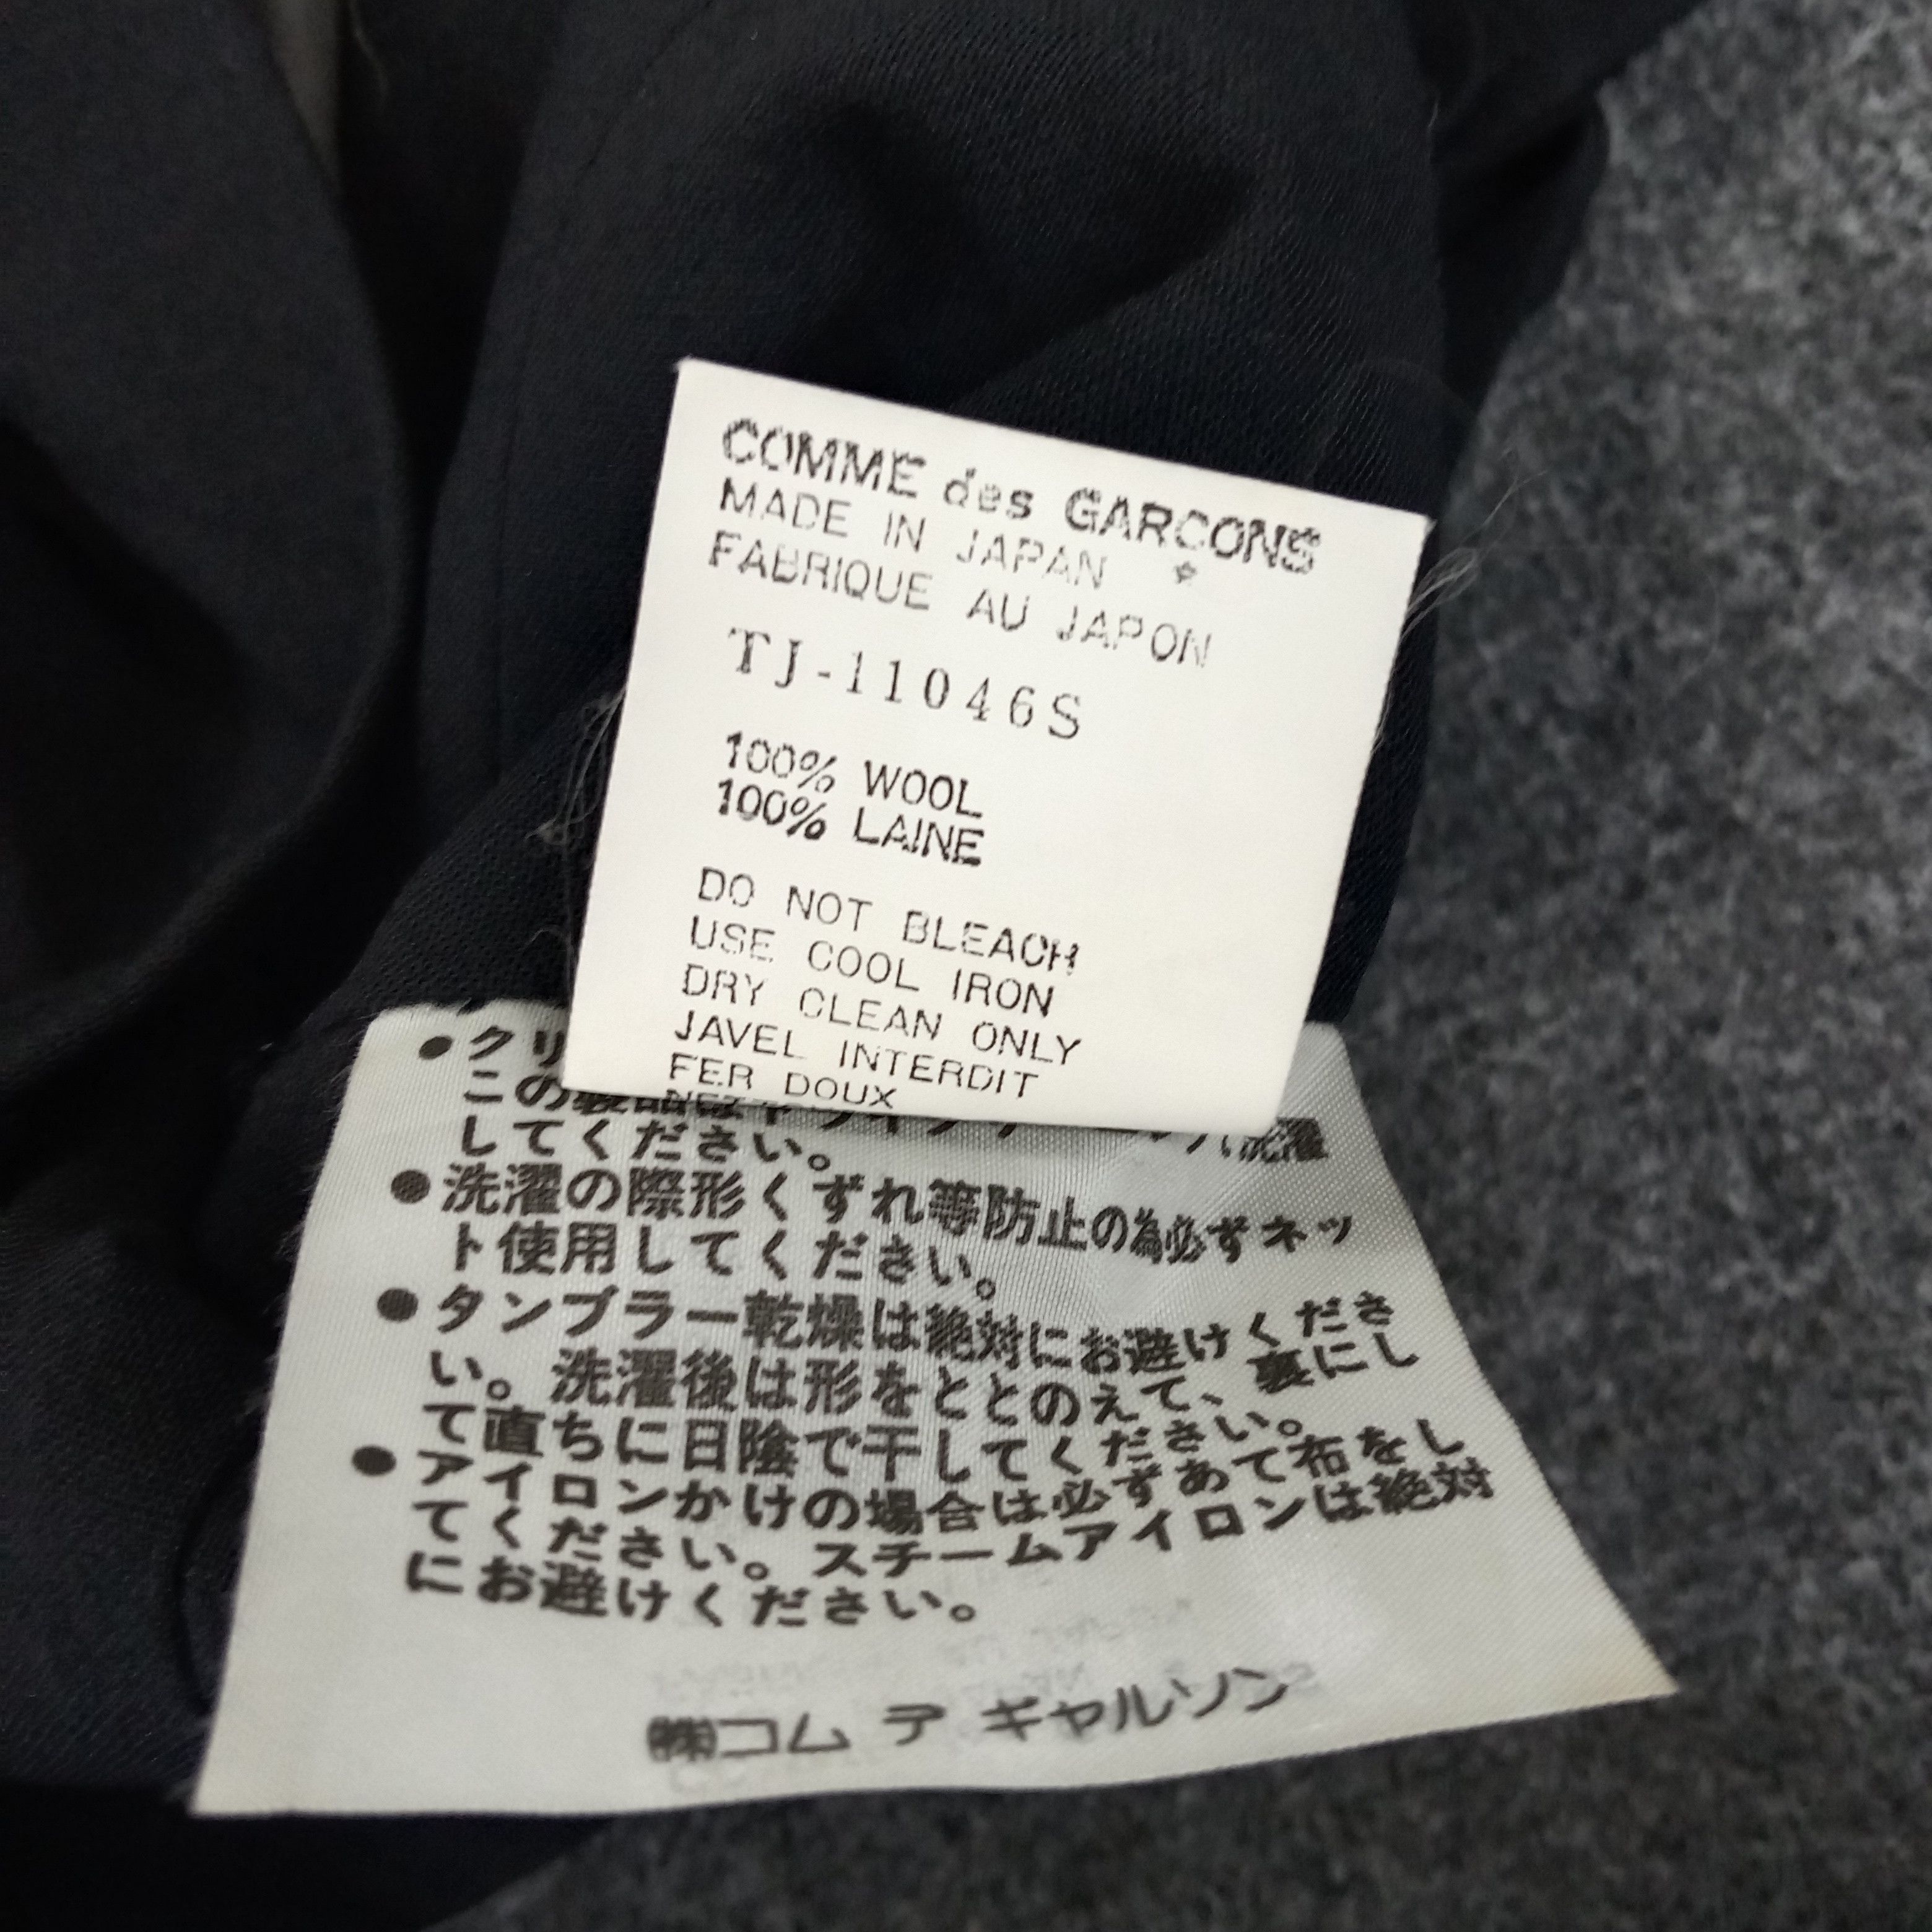 COMME des GARCONS
MADE IN JAPAN *
FABRIQUE AU JAPON
TJ-11046S
100% WOOL
100% LAINE
DO NOT BLEACH
USE COOL IRON
DRY CLEAN ONLY
JAVEL INTERDIT
FER DOUX
●クリ
この製品はドライクリーニング 洗濯
してください。
●洗濯の際形くずれ等防止の為必ずネッ
ト使用してください。
●タンブラー乾燥は絶対にお避けくださ
い。洗濯後は形をととのえて、裏にし
て直ちに日陰で干してください。
●アイロンかけの場合は必ずあて布をし
てください。スチームアイロンは絶対
にお避けください。
㈱コム デ ギャルソン